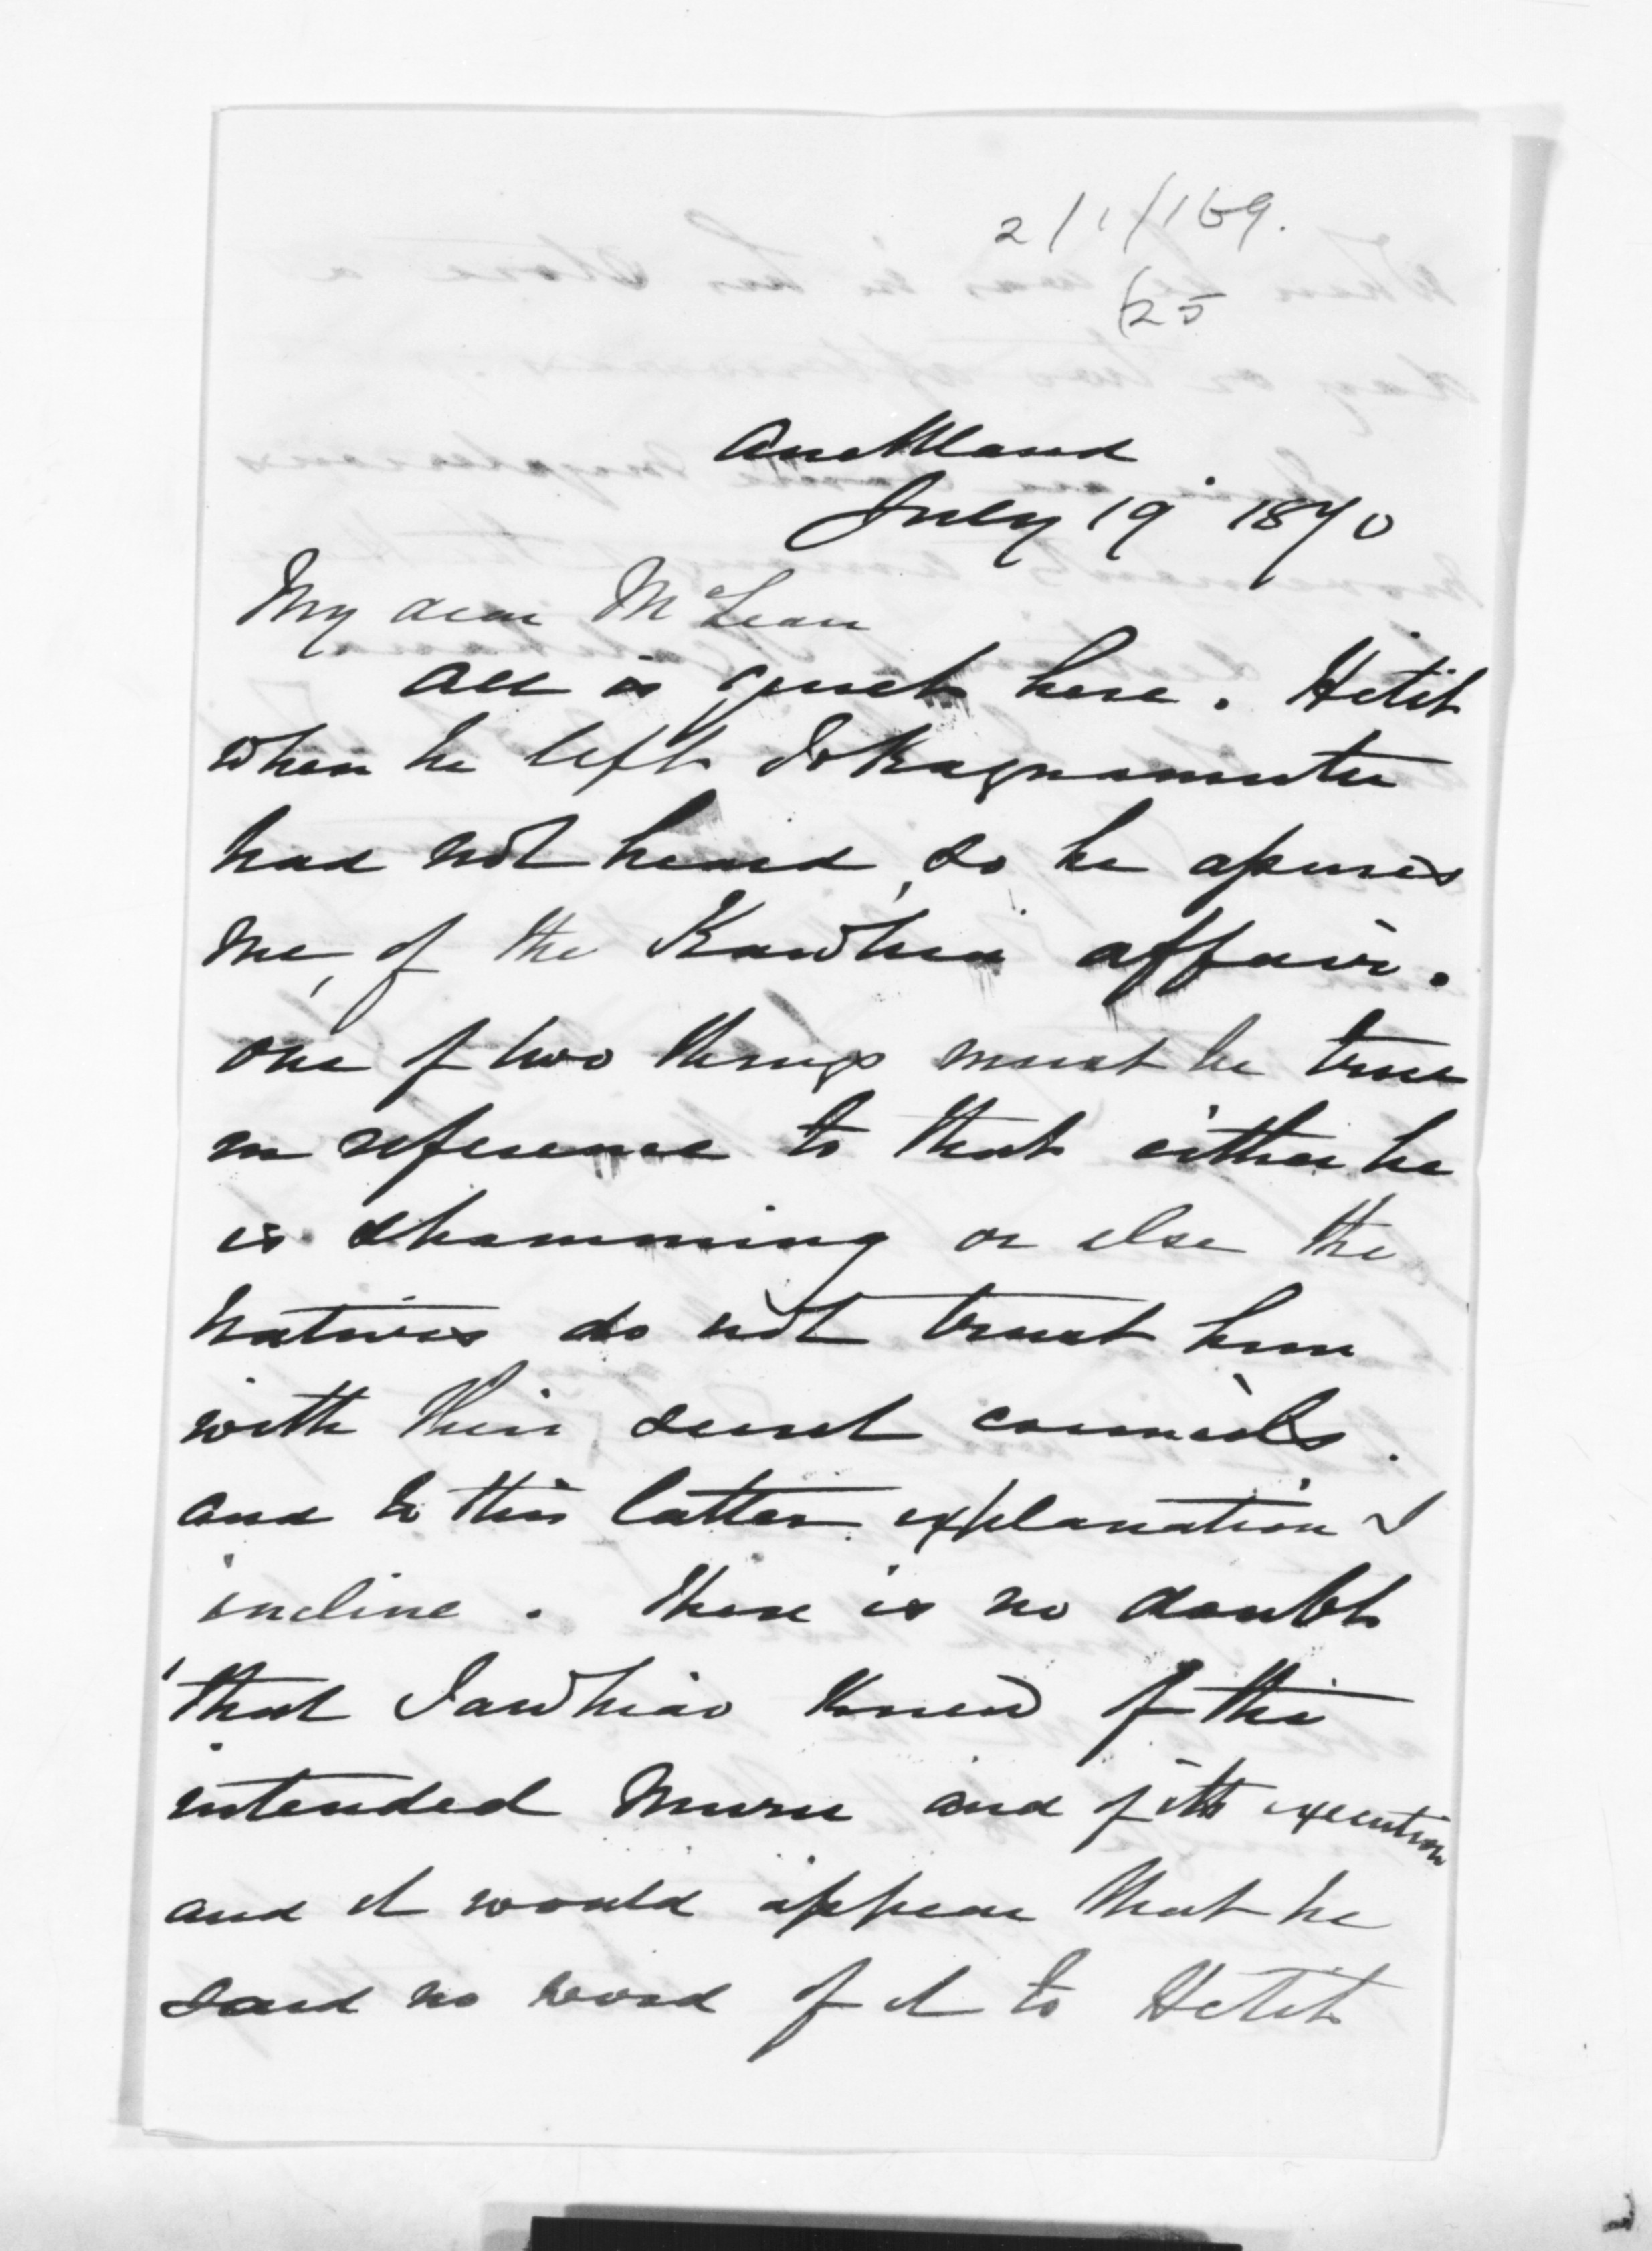 2/1/169.
(25
Auckland
July 19 1870
My dear McLean
All is quiet here. Hetit
when he left Tokangamutu
had not heard, so he assures
me, of the Kawhia affair.
One of two things must be true
in reference to that either he
is shamming or else the
natives do not trust him
with their secret councils.
and to this latter explanation I
incline. There is no doubt
that Tawhiao knew of the
intended muru and of its execution
and it would appear that he
said no word of it to Hetit